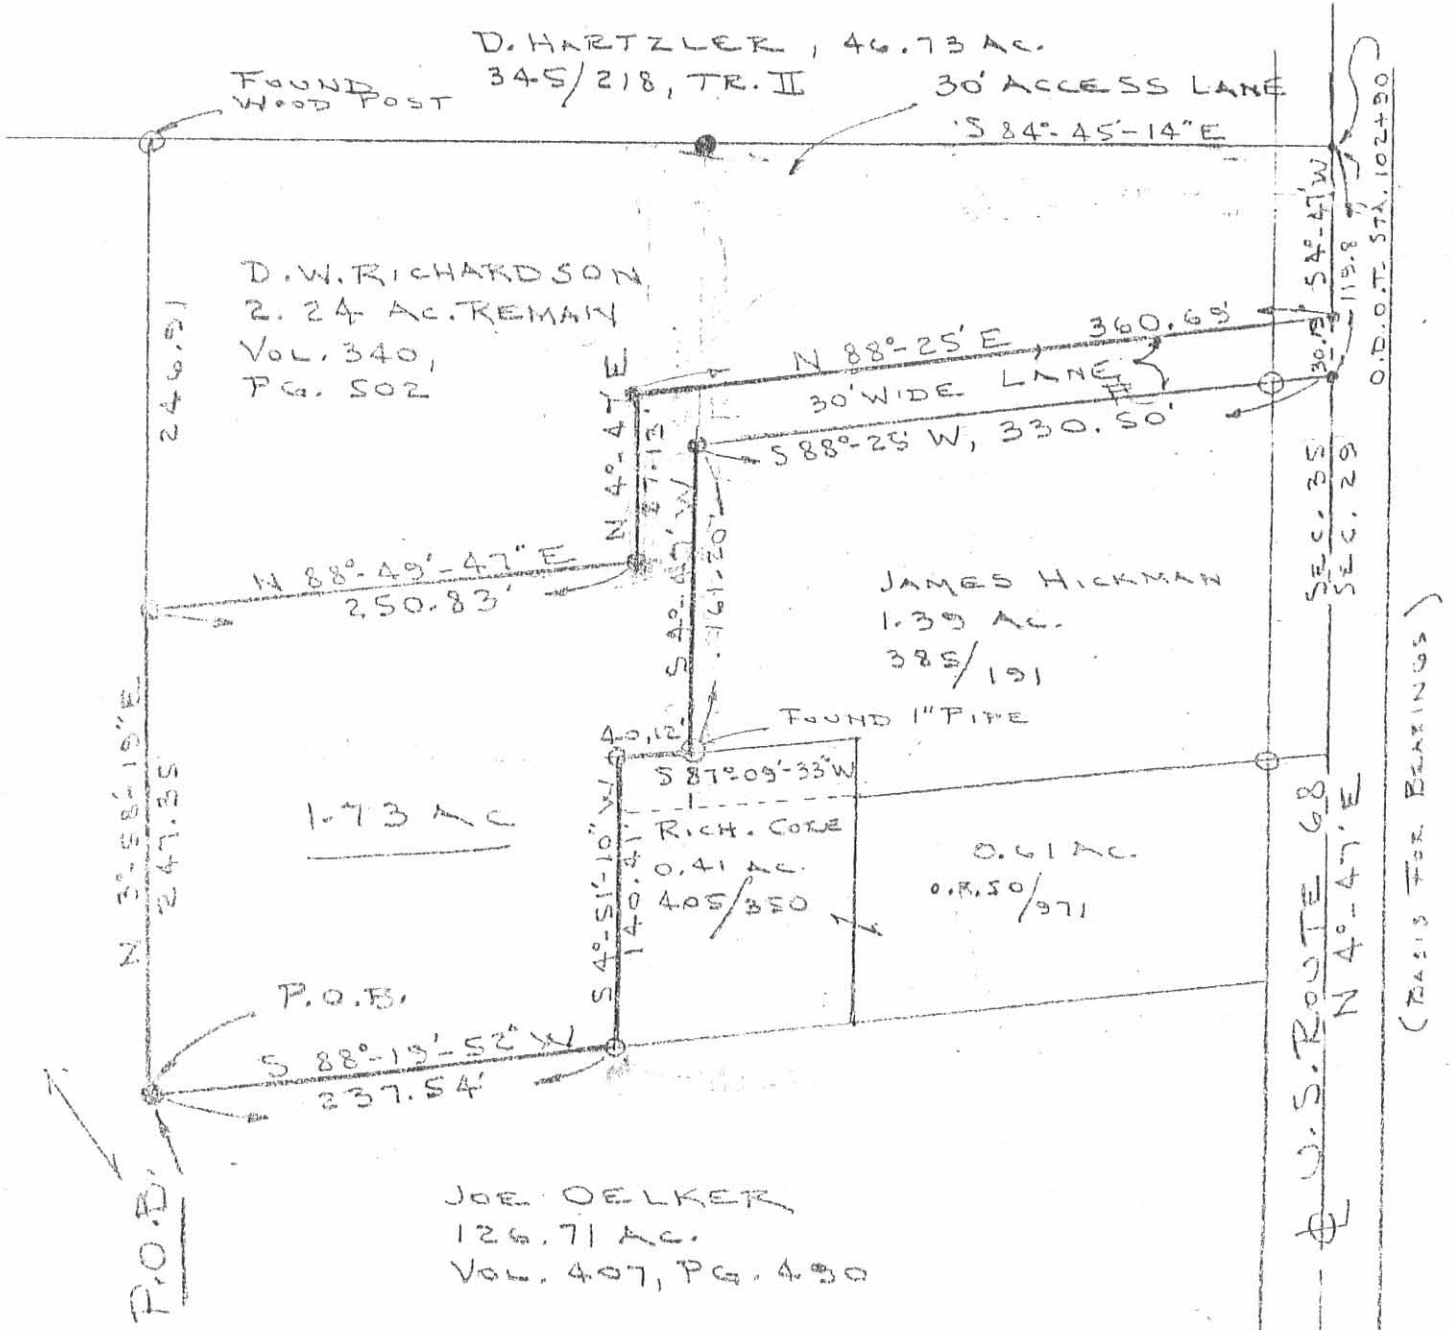 D. HARTZLER, 46.73 AC.
345/218, TR. II
FOUND
WOOD POST
30' ACCESS LANE
S 84°-45'-14" E
O.D.O.T. STA. 102+90
S 4°-47' W
119.8
30.19
D.W. RICHARDSON
2.24 AC. REMAN
VOL. 340,
PG. 502
246.91
N 88°-25' E, 360.69'
30' WIDE LANE
S 88°-25' W, 330.50'
N 4°-47' E
87.13'
N 88°-49'-47" E
250.83'
S 4°-47' W
161.20'
SEC. 35
SEC. 29
JAMES HICKMAN
1.39 AC.
385/191
FOUND 1" PIPE
40.12
S 87°-09'-33" W
N 3°-58'-19" E
247.35
1.73 AC
S 4°-51'-10" W
140.41'
RICH. CORE
0.41 AC.
405/350
0.61 AC.
O.R. 50/971
U.S. ROUTE 68
N 4°-47' E
(BASIS FOR BEARINGS)
P.O.B.
S 88°-19'-52" W
237.54'
P.O.B.
JOE OELKER
126.71 AC.
VOL. 407, PG. 490